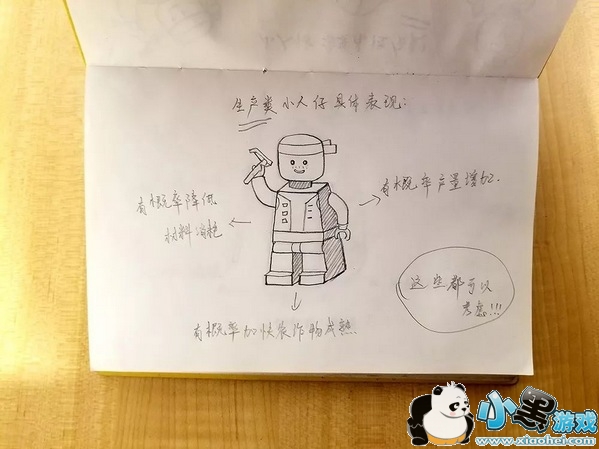 生产类小人仔具体表现:
有概率降低
材料消耗
有概率产量增加.
有概率加快农作物成熟
这些都可以
考虑!!!
小黑游戏
www.xiaohei.com